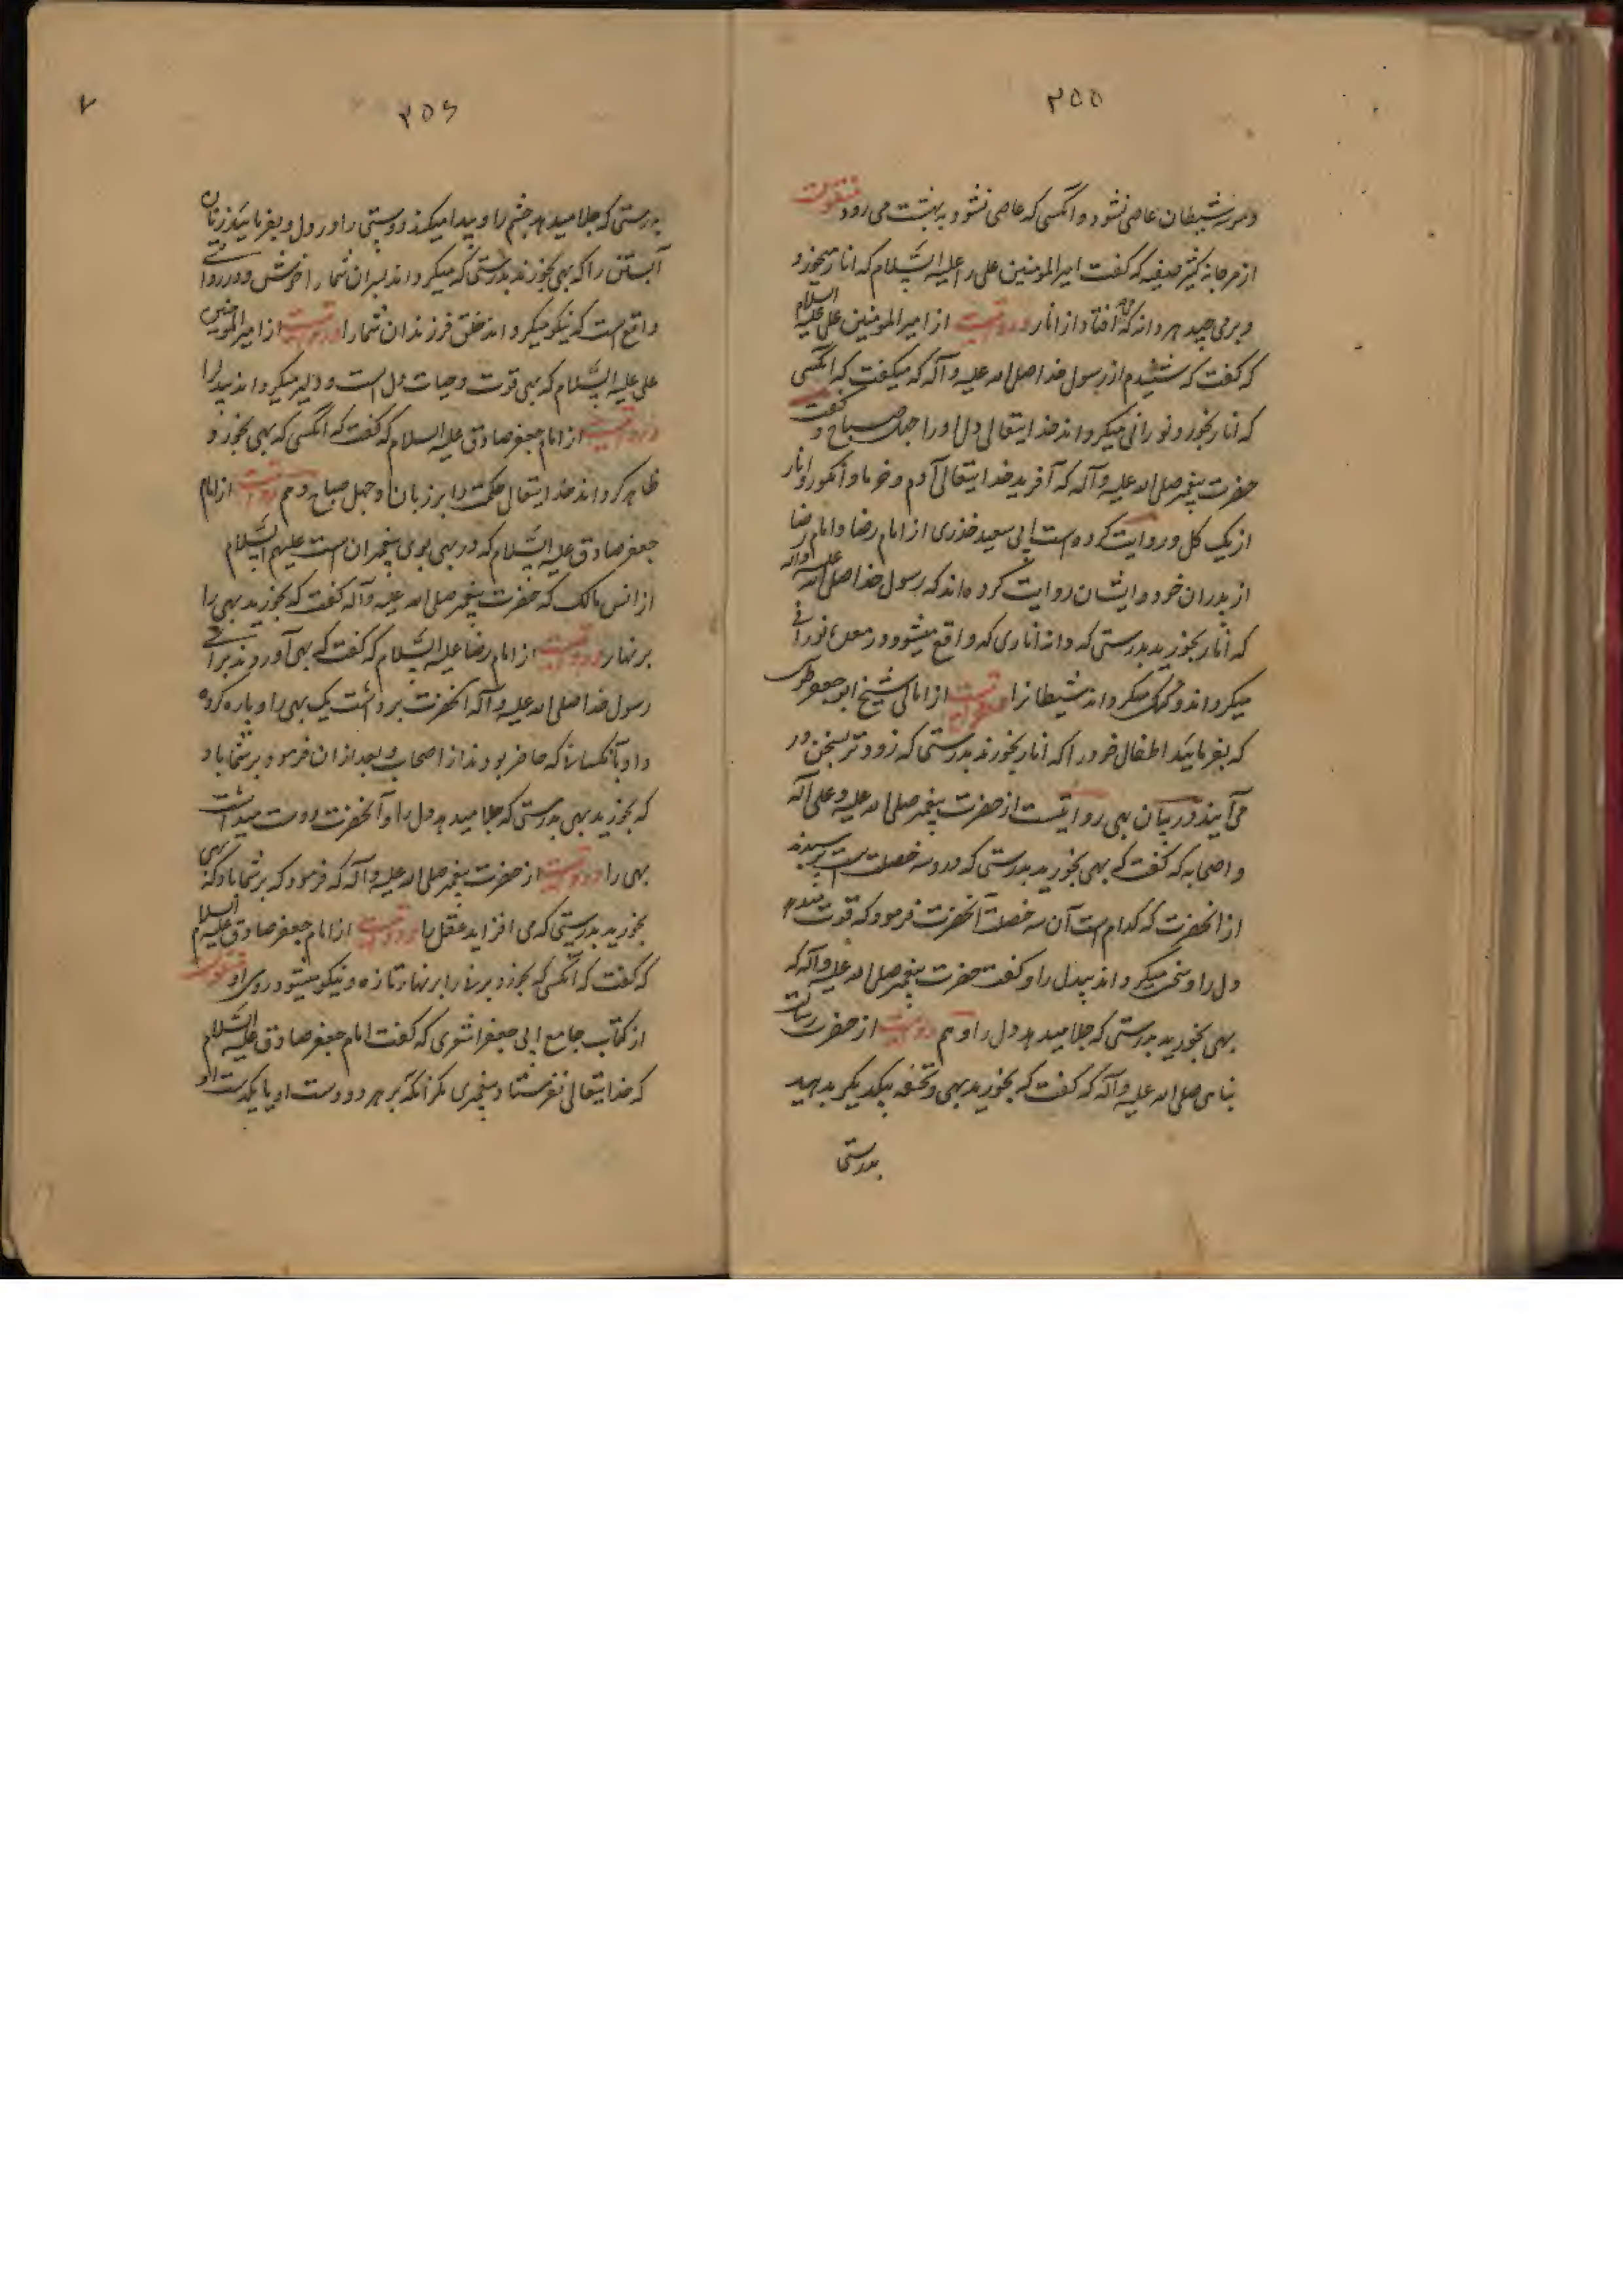 ۲۵۵
وسوسه شیطان عاصی نشود و آنکسی که عاصی نشود به بهشت می رود منقولست
از مرجانه کنیز صفیه که گفت امیر المومنین علی را علیه السلام که انار میخورد و
و برمی چید هر دانه که می افتاد از انار و روایتست از امیر المومنین علی علیه السلام
که گفت که شنیدم از رسول خدا صلی الله علیه و آله که میگفت که آنکسی
که انار بخورد نورانی میگرداند خدایتعالی دل او را چهل صباح و گفت
حضرت پیغمبر صلی الله علیه و آله که آفرید خدایتعالی آدم و خرما و انگور و انار
از یک گل و روایت کرده است ابی سعید خذری از امام رضا و امام رضا
از پدران خود و ایشان روایت کرده اند که رسول خدا صلی الله علیه و آله
که انار بخورید بدرستی که دانه اناری که واقع میشود در معده نورانی
میگرداند و میگرداند شیطانرا و منقولست از امالی شیخ ابو جعفر طوسی
که بفرمایید اطفال خود را که انار بخورند بدرستی که زودتر بسخن در
می آیند در بیان بهی روایتست از حضرت پیغمبر صلی الله علیه و علی آله
و اصحابه که گفت که بهی بخورید بدرستی که درو سه خصلت است پرسیدند
از آنحضرت که کدام است آن سه خصلت آنحضرت فرمود که قوت میدهد
دل را و سخی میگرداند بیدل را و گفت حضرت پیغمبر صلی الله علیه و آله که
بهی بخورید بدرستی که جلا میدهد دل را و هم روایتست از حضرت رسالت
پناهی صلی الله علیه و آله که گفت که بخورید بهی و تحفه بیکدیگر بدهید
بدرستی
۲۵۶
بدرستی که جلا میدهد چشم را و پیدا میکند دوستی را در دل و بفرمایید زنان
آبستن را که بهی بخورند بدرستی که میگرداند پسران شما را خوش و در روایتی
واقع است که نیکو میگرداند خلق فرزندان شما را و روایتست از امیر المومنین
علی علیه السلام که بهی قوت و حیات دل است و دلیر میگرداند بیدل را
و روایتست از امام جعفر صادق علیه السلام که گفت که آنکسی که بهی بخورد
ظاهر گرداند خدایتعالی حکمت را بر زبان او چهل صباح و هم روایتست از امام
جعفر صادق علیه السلام که در بهی بوی پیغمبران است علیهم السلام
از انس مالک که حضرت پیغمبر صلی الله علیه و آله گفت که بخورید بهی را
بر نهار و روایتست از امام رضا علیه السلام که گفت که بهی آوردند برای
رسول خدا صلی الله علیه و آله آنحضرت برداشت یک بهی را و پاره کرده
داد بآنکسانی که حاضر بودند از اصحاب و بعد از ان فرمود بر شما باد
که بخورید بهی بدرستی که جلا میدهد دل را و آنحضرت دوست میداشت
بهی را و روایتست از حضرت پیغمبر صلی الله علیه و آله که فرمود که بر شما باد که بهی
بخورید بدرستی که می افزاید عقل را و روایتست از امام جعفر صادق علیه السلام
که گفت که آنکسی که بخورد بهی را بر نهار تازه و نیکو میشود روی او منقولست
از کتاب جامع ابی جعفر اشعری که گفت امام جعفر صادق علیه السلام
که خدایتعالی نفرستاد پیغمبری مگر آنکه بر هر دو دست او یا یکدست او